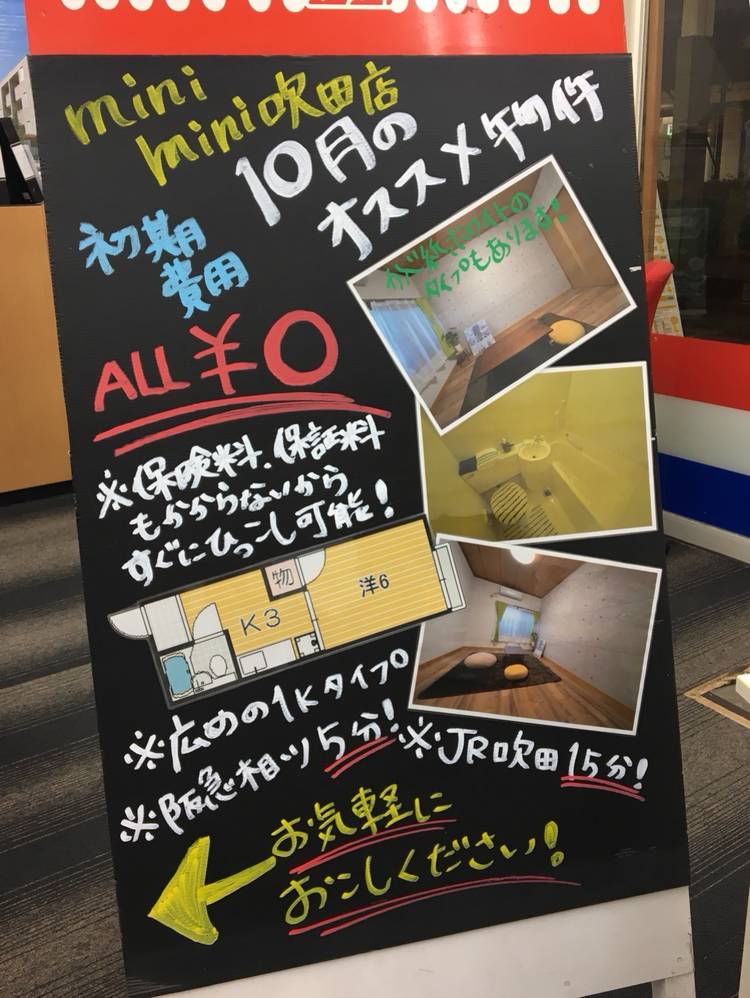 mini
mini吹田店
10月の
オススメ物件
初期
費用
ALL ¥0
かべ紙ホワイトの
タイプもあります!
※保険料、保証料
もかからないから
すぐにひっこし可能!
物
洋6
K3
※広めの1Kタイプ
※阪急相川5分!
※JR吹田15分!
お気軽に
おこしください!